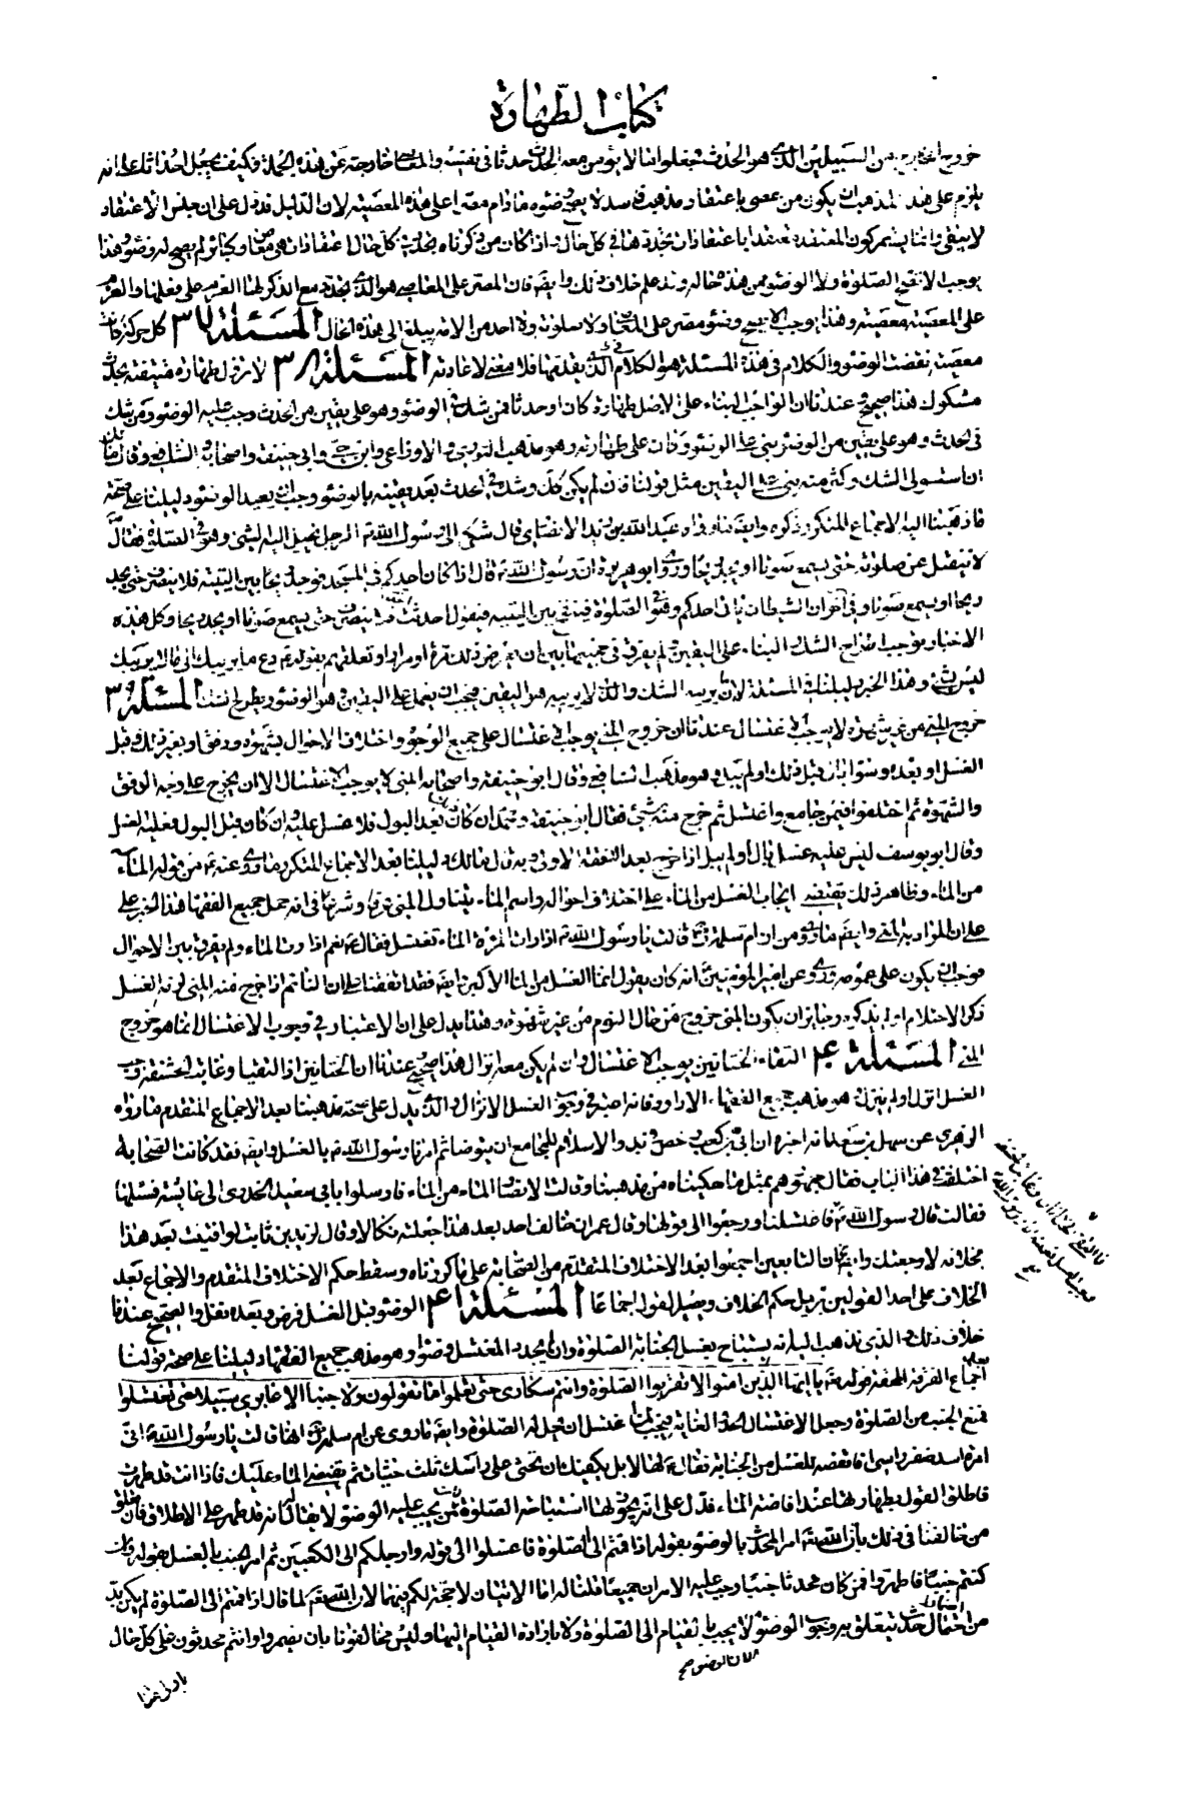 كتاب الطهارة
خروج الخارج من السبيلين الذي هو الحدث فجعلوا ما لا يؤمن معه الحدث حدثا في نفسه والمعاصي خارجة عن هذه الجملة فكيف يجعل احداثا على انه
يلزم على هذا المذهب ان يكون من عصى باعتقاد مذهب فاسد لا يصح وضوئه ما دام مقيما على هذه المعصية لان الدليل قد دل على ان جنس الاعتقاد
لا يبقى وانما يستمر كون المعتقد معتقدا باعتقادات تجددها في كل حال اذا كان من ذكرناه يحدث كل حال اعتقادات هي معاص وكبائر لم يصح له وضوء وهذا
يوجب الا تصح الصلوة ولا الوضوء من هذه حاله وقد علم خلاف ذلك وايضا فان المصر على المعاصي هو الذي يجدد مع الذكر لها العزم على فعلها والعزم
على المعصية معصية وهذا يوجب الا يصح وضوء مصر على المعاصي ولا صلوته ولا احد من الامة يبلغ الى هذه الحال المسئلة ٣٧ كل حركة كانت
معصية نقضت الوضوء والكلام في هذه المسئلة هو الكلام في الذي تقدمها فلا معنى لاعادته المسئلة ٣٨ لا تزول طهارة متيقنة بحدث
مشكوك هذا صحيح وعندنا ان الواجب البناء على الاصل طهارة كان او حدثا فمن شك في الوضوء وهو على يقين من الحدث وجب عليه الوضوء ومن شك
في الحدث وهو على يقين من الوضوء بنى على الوضوء وكان على طهارته وهو مذهب الثوري والاوزاعي وابن حي وابي حنيفة واصحابه والشافعي وقال مالك
ان استولى الشك وكثر منه بنى على اليقين مثل قولنا فان لم يكن كذلك وشك في الحدث بعد يقينه بالوضوء وجب ان يعيد الوضوء دليلنا على صحة
ما ذهبنا اليه الاجماع المتكرر ذكره وايضا ما رواه عبد الله بن زيد الانصاري قال شكي الى رسول الله الرجل يخيل اليه الشئ وهو في الصلوة فقال
لا ينفتل عن صلوته حتى يسمع صوتا او يجد ريحا وروى ابو هريرة ان رسول الله قال اذا كان احدكم في المسجد فوجد ريحا بين اليتيه فلا ينصرف حتى يجد
ريحا او يسمع صوتا وفي آخر ان الشيطان ياتي احدكم وهو في الصلوة فينفخ بين اليتيه فيقول احدثت احدثت فلا ينصرف حتى يسمع صوتا او يجد ريحا وكل هذه
الاخبار يوجب اطراح الشك والبناء على اليقين ولم يفرق في جميعها بين ان يعرض ذلك مرة او مرارا وتعلقهم بقوله دع ما يريبك الى ما لا يريبك
ليس بشئ وهذا الخبر دليلنا في المسئلة لان ما يريبه الشك والذي لا يريبه هو اليقين فيجب ان يعمل على اليقين وهو الوضوء ويطرح الشك المسئلة ٣٩
خروج المني من غير شهوة لا يوجب الاغتسال عندنا ان خروج المني يوجب الاغتسال على جميع الوجوه واختلاف الاحوال بشهوة ودفق او بغير ذلك وقبل
الغسل او بعده وسواء بال قبل ذلك او لم يبل وهو مذهب الشافعي وقال ابو حنيفة واصحابه المني لا يوجب الاغتسال الا ان يخرج على وجه الدفق
والشهوة ثم اختلفوا فيمن جامع واغتسل ثم خرج منه شئ فقال ابو حنيفة ومحمد ان كان بعد البول فلا غسل عليه وان كان قبل البول فعليه الغسل
وقال ابو يوسف ليس عليه غسل بال او لم يبل اذا خرج بعد الدفقة الاولى وبه قال مالك دليلنا بعد الاجماع المتكرر ما روي عنه من قوله الماء
من الماء وظاهر ذلك يقتضي ايجاب الغسل من الماء على اختلاف احواله واسم الماء يتناول المني عرفا وشرعا في انه حمل جميع الفقهاء هذا الخبر على
على ان المراد به المني وايضا ما روي من ان ام سلمة قالت يا رسول الله اذا رات المرئة الماء تغتسل فقال نعم اذا رات الماء ولم يفرق بين الاحوال
فوجب ان يكون على عمومه وروى عن امير المؤمنين انه كان يقول انما الغسل من الماء الاكبر وايضا فقد اتفقنا على ان النائم اذا خرج منه المني لزمه الغسل
ذكر الاحتلام او لم يذكره وجايز ان يكون المني خروج من حال النوم من غير شهوة وهذا يدل على ان الاعتبار في وجوب الاغتسال انما هو خروج
المني المسئلة ٤٠ التقاء الختانين يوجب الاغتسال وان لم يكن معه انزال هذا صحيح عندنا ان الختانين اذا التقيا وغابت الحشفة وجب
الغسل انزل او لم ينزل وهو مذهب جميع الفقهاء الا داود فانه اعتبر في وجوب الغسل الانزال والذي يدل على صحة مذهبنا بعد الاجماع المتقدم ما رواه
الزهري عن سهل بن سعد انه اخبره ان ابي بن كعب رخص في بدو الاسلام للمجامع ان يتوضا ثم امرنا رسول الله بالغسل وايضا فقد كانت الصحابة
اختلفت في هذا الباب فقال جمهورهم بمثل ما حكيناه من مذهبنا وقالت الانصار الماء من الماء فارسلوا بابي سعيد الخدري الى عائشة فسئلها
فقالت قال رسول الله فاغتسلنا ورجعوا الى قولها وقال عمر ان خالف احد بعد هذا جعلته نكالا وقال لزيد بن ثابت لو افتيت بعد هذا
بخلافه لاوجعتك وايضا فان التابعين اجمعوا بعد الاختلاف المتقدم من الصحابة على ما ذكرناه وسقط حكم الاختلاف المتقدم والاجماع بعد
الخلاف على احد القولين يزيل حكم الخلاف ويصير القول اجماعا المسئلة ٤١ الوضوء قبل الغسل فرض وبعده نفل والصحيح عندنا
خلاف ذلك والذي نذهب اليه انه يستباح بغسل الجنابة الصلوة وان لم يجدد المغتسل وضوءا وهو مذهب جميع الفقهاء دليلنا على صحة قولنا
اجماع الفرقة المحقة قوله تعالى يا ايها الذين امنوا لا تقربوا الصلوة وانتم سكارى حتى تعلموا ما تقولون ولا جنبا الا عابري سبيل حتى تغتسلوا
فمنع الجنب من الصلوة وجعل الاغتسال الحد والغاية فيجب لمن اغتسل ان تحل له الصلوة وايضا ما روى عن ام سلمة انها قالت يا رسول الله اني
امرءة اشد ضفر راسي افانقضه للغسل من الجنابة فقال لها لا بل يكفيك ان تحثي على راسك ثلث حثيات ثم تفيضي الماء عليك فاذا انت قد طهرت
فاطلق القول بطهارتها عند افاضة الماء فدل على انه يجوز لها استباحة الصلوة لان من يجب عليه الوضوء لا يقال انه قد طهر على الاطلاق فان تعلق
من خالفنا في ذلك بان الله تعالى امر المحدث بالوضوء بقوله اذا قمتم الى الصلوة فاغسلوا الى قوله وارجلكم الى الكعبين ثم امر الجنب بالغسل بقوله وان
كنتم جنبا فاطهروا فمن كان محدثا جنبا وجب عليه الامران جميعا قلنا له اما الايتان لا حجة لكم فيهما لان الله تعالى لما قال اذا قمتم الى الصلوة لم يكن بد
من اضمار حدث يتعلق به وجوب الوضوء لا يجب بالقيام الى الصلوة ولا بارادة القيام اليها وليس مخالفونا بان يضمروا وانتم محدثون على كل حال
لان الوضوء صح
باولى منا